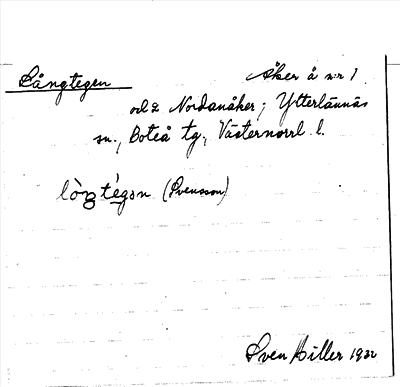 Långtegen Åker å n:r 1
och 2 Nordanåker; Ytterlännäs
sn., Boteå tg, Västernorrl. l.
lòŋtégən (Svensson)
Sven Hiller 1932